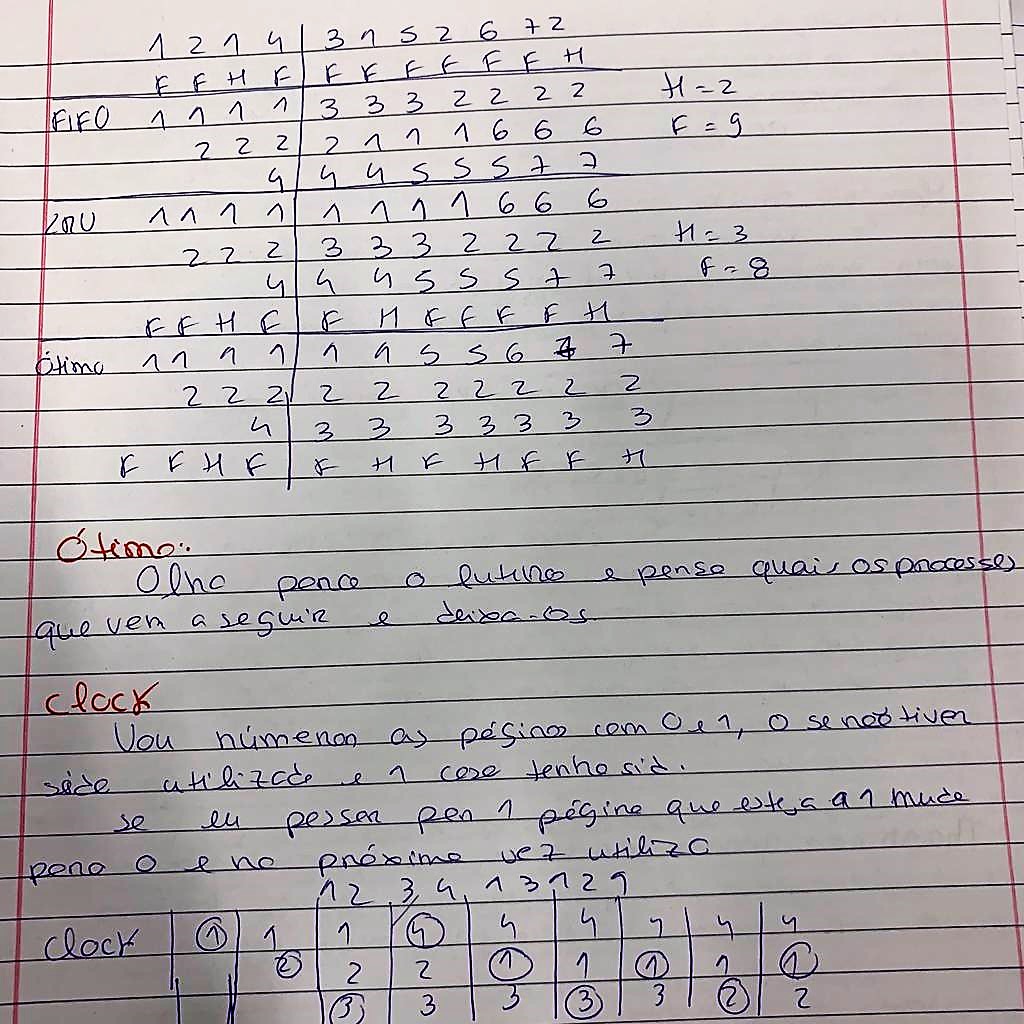 1 2 1 4 3 1 5 2 6 7 2
F F H F F F F F F F H
FIFO 1 1 1 1 3 3 3 2 2 2 2 H = 2
2 2 2 2 1 1 1 6 6 6 F = 9
4 4 4 5 5 5 7 7
LRU 1 1 1 1 1 1 1 1 6 6 6
2 2 2 3 3 3 2 2 2 2 H = 3
4 4 4 5 5 5 7 7 F = 8
F F H F F H F F F F H
Ótimo 1 1 1 1 1 1 5 5 6 7 7
2 2 2 2 2 2 2 2 2 2
4 3 3 3 3 3 3 3
F F H F F H F H F F H
Ótimo:
Olha para o futuro e pensa quais os processes
que vem a seguir e deixa-os
Clock
Vou númerar as páginas com 0 e 1, 0 se não tiver
sido utilizada e 1 caso tenha sid.
se eu passar por 1 página que esteja a 1 muda
para 0 e na próxima vez utiliza
1 2 3, 4, 1 3 1 2 1
Clock 1 1 1 4 4 4 4 4 4
2 2 2 1 1 1 1 1
3 3 3 3 3 2 2